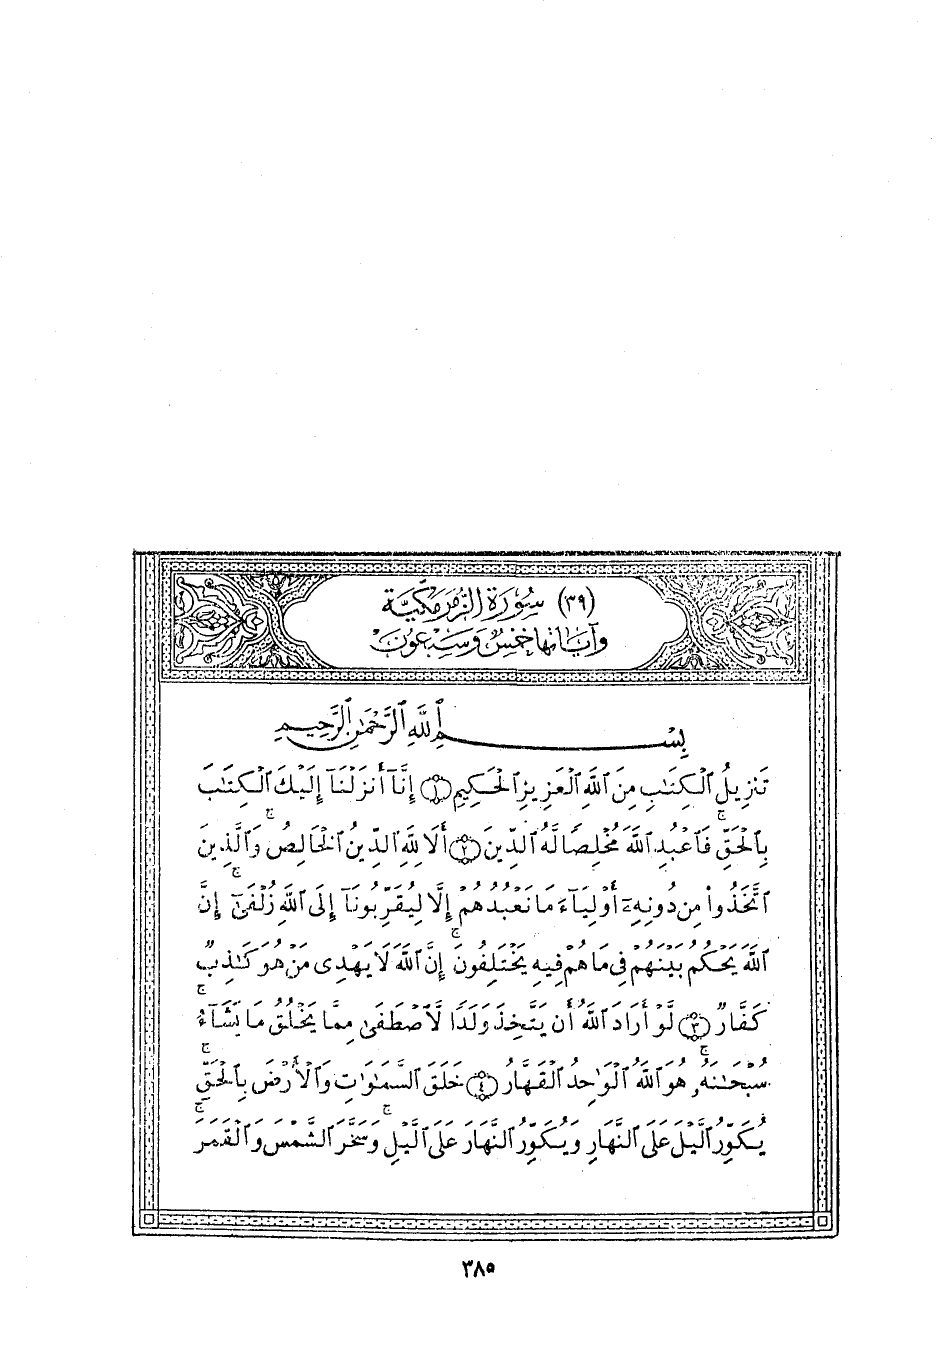 (٣٩) سُوْرَةِ الزُّمَرِ مَكِّيَّة
وَآيَاتُهَا خَمْسٌ وَسَبْعُوْنَ
بِسْمِ ٱللَّهِ ٱلرَّحْمَٰنِ ٱلرَّحِيمِ
تَنزِيلُ ٱلْكِتَٰبِ مِنَ ٱللَّهِ ٱلْعَزِيزِ ٱلْحَكِيمِ ﴿١﴾ إِنَّآ أَنزَلْنَآ إِلَيْكَ ٱلْكِتَٰبَ
بِٱلْحَقِّ فَٱعْبُدِ ٱللَّهَ مُخْلِصًا لَّهُ ٱلدِّينَ ﴿٢﴾ أَلَا لِلَّهِ ٱلدِّينُ ٱلْخَالِصُ ۚ وَٱلَّذِينَ
ٱتَّخَذُوا۟ مِن دُونِهِۦٓ أَوْلِيَآءَ مَا نَعْبُدُهُمْ إِلَّا لِيُقَرِّبُونَآ إِلَى ٱللَّهِ زُلْفَىٰٓ ۚ إِنَّ
ٱللَّهَ يَحْكُمُ بَيْنَهُمْ فِى مَا هُمْ فِيهِ يَخْتَلِفُونَ ۚ إِنَّ ٱللَّهَ لَا يَهْدِى مَنْ هُوَ كَٰذِبٌ
كَفَّارٌ ﴿٣﴾ لَّوْ أَرَادَ ٱللَّهُ أَن يَتَّخِذَ وَلَدًا لَّٱصْطَفَىٰ مِمَّا يَخْلُقُ مَا يَشَآءُ ۚ
سُبْحَٰنَهُۥ ۚ هُوَ ٱللَّهُ ٱلْوَٰحِدُ ٱلْقَهَّارُ ﴿٤﴾ خَلَقَ ٱلسَّمَٰوَٰتِ وَٱلْأَرْضَ بِٱلْحَقِّ ۚ
يُكَوِّرُ ٱلَّيْلَ عَلَى ٱلنَّهَارِ وَيُكَوِّرُ ٱلنَّهَارَ عَلَى ٱلَّيْلِ ۚ وَسَخَّرَ ٱلشَّمْسَ وَٱلْقَمَرَ ۚ
٣٨٥